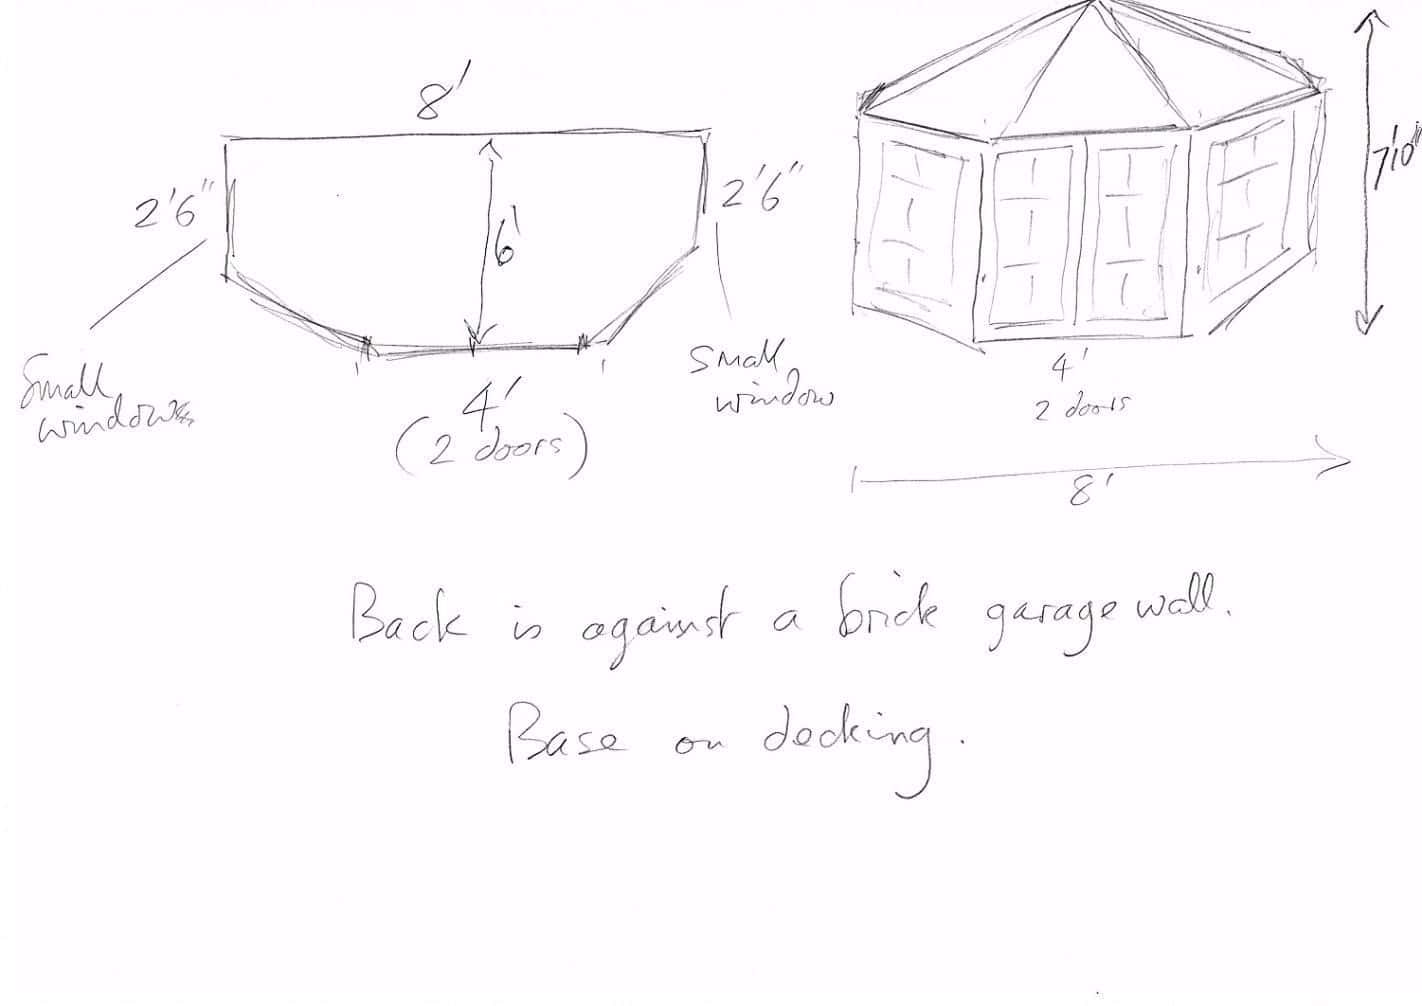 8'
2'6"
6'
2'6"
7'10"
Small
windows
Small
window
4'
(2 doors)
4'
2 doors
8'
Back is against a brick garage wall.
Base on decking.